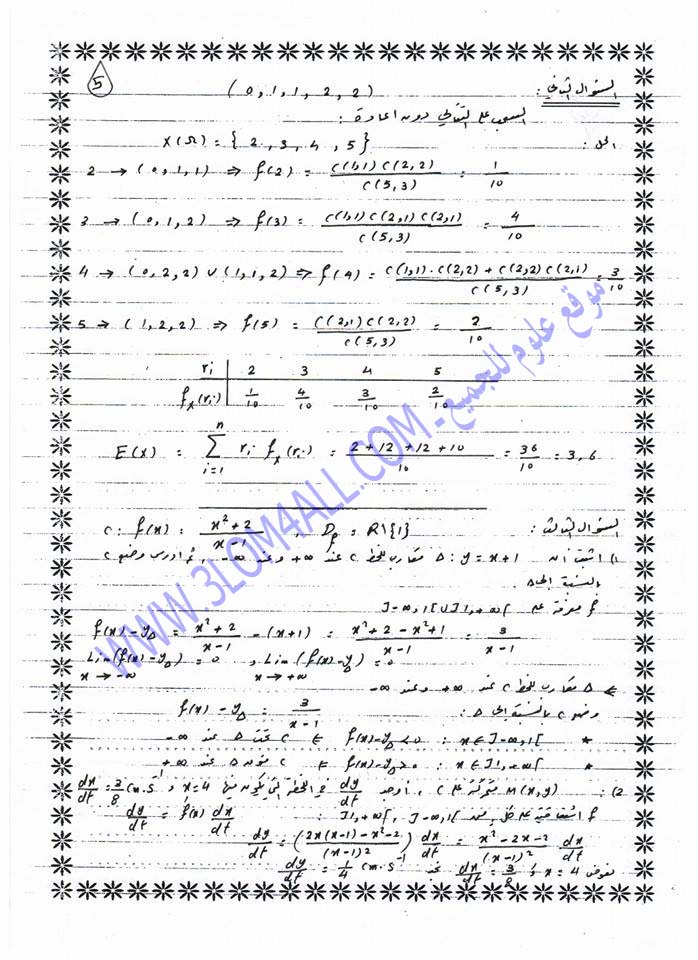 5
السؤال الثاني : ( 0 , 1 , 1 , 2 , 2 )
السحب على التتالي دون اعادة :
الحل : X(Ω) = { 2 , 3 , 4 , 5 }
2 → ( 0 , 1 , 1 ) ⇒ f(2) = C(1,1) C(2,2) / C(5,3) = 1/10
3 → ( 0 , 1 , 2 ) ⇒ f(3) = C(1,1) C(2,1) C(2,1) / C(5,3) = 4/10
4 → ( 0 , 2 , 2 ) ∪ ( 1 , 1 , 2 ) ⇒ f(4) = C(1,1) . C(2,2) + C(2,2) C(2,1) / C(5,3) = 3/10
5 → ( 1 , 2 , 2 ) ⇒ f(5) = C(2,1) C(2,2) / C(5,3) = 2/10
ri 2 3 4 5
fx(ri) 1/10 4/10 3/10 2/10
E(X) = Σ i=1 n ri fx(ri) = 2 + 12 + 12 + 10 / 10 = 36/10 = 3,6
السؤال الثالث : C : f(x) = x²+2 / x-1 , Df = R\{1}
1) اثبت ان Δ : y = x+1 مقارب للخط C عند +∞ وعند -∞ ، ثم ادرس وضع C
بالنسبة الى Δ
f معرفة على ]-∞,1[ ∪ ]1,+∞[
f(x) - yΔ = x²+2 / x-1 - (x+1) = x²+2-x²+1 / x-1 = 3 / x-1
Lim (f(x)-yΔ) = 0 x→-∞ , Lim (f(x)-yΔ) = 0 x→+∞
⇐ Δ مقارب للخط C عند +∞ وعند -∞
وضع C بالنسبة الى Δ : f(x) - yΔ = 3 / x-1
* x ∈ ]-∞,1[ : f(x)-yΔ < 0 ⇐ C تحت Δ عند -∞
* x ∈ ]1,+∞[ : f(x)-yΔ > 0 ⇐ C فوق Δ عند +∞
2) : M(x,y) متحركة على C ، أوجد dy/dt في اللحظة التي يكون فيها x=4 و dx/dt = 3/8 cm.s⁻¹
f اشتقاقية على ]-∞,1[ , ]1,+∞[ : dy/dt = f'(x) dx/dt
dy/dt = ( 2x(x-1) - x²-2 / (x-1)² ) dx/dt = x²-2x-2 / (x-1)² dx/dt
نعوض x = 4 و dx/dt = 3/8 نجد dy/dt = 1/4 cm.s⁻¹
WWW.3LOM4ALL.COM - موقع علوم للجميع